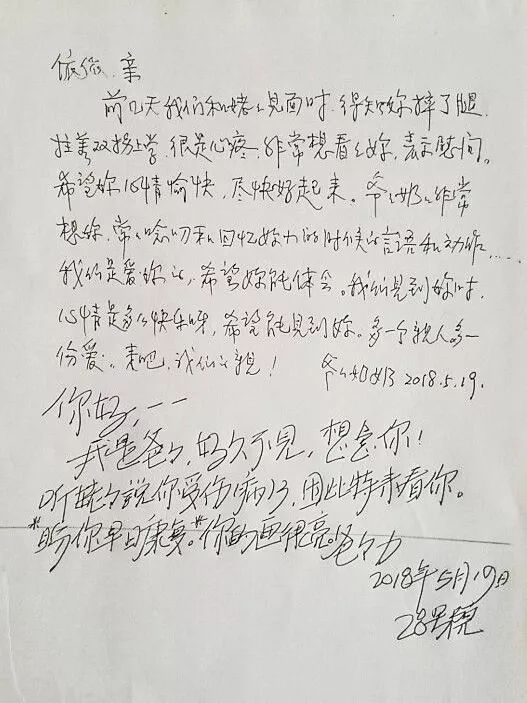 依依,亲
前几天我们和姥姥见面时,得知妳摔了腿,
拄着双拐上学,很是心疼,非常想看看妳,表示慰问。
希望妳心情愉快,尽快好起来。爷爷奶奶非常
想妳,常常念叨和回忆妳小的时候的言语和动作......
我们是爱妳的,希望妳能体会。我们见到妳时,
心情是多么快乐呀,希望能见到妳。多一个亲人多一
份爱。来吧,我们的亲!
爷爷奶奶 2018.5.19.
你好,一一
我是爸爸,好久不见,想念你!
听姥姥說你受伤病了,因此特来看你。
盼你早日康复。你的画很亮。爸爸
2018年5月19日